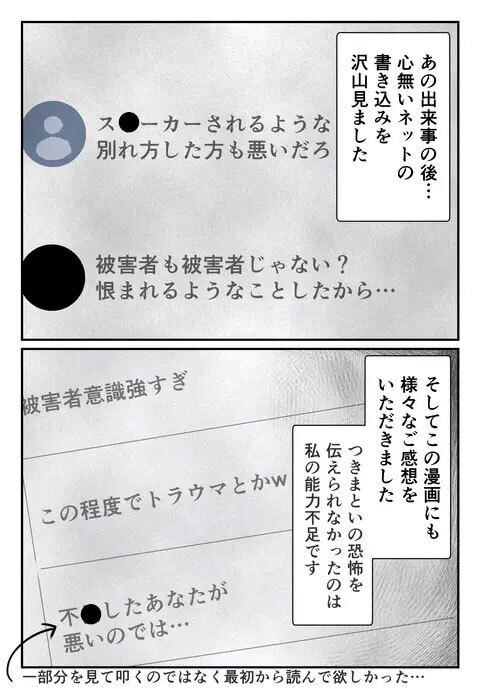 あの出来事の後…
心無いネットの
書き込みを
沢山見ました
ス●ーカーされるような
別れ方した方も悪いだろ
被害者も被害者じゃない？
恨まれるようなことしたから…
そしてこの漫画にも
様々なご感想を
いただきました
つきまといの恐怖を
伝えられなかったのは
私の能力不足です
被害者意識強すぎ
この程度でトラウマとかw
不●したあなたが
悪いのでは…
一部分を見て叩くのではなく最初から読んで欲しかった…